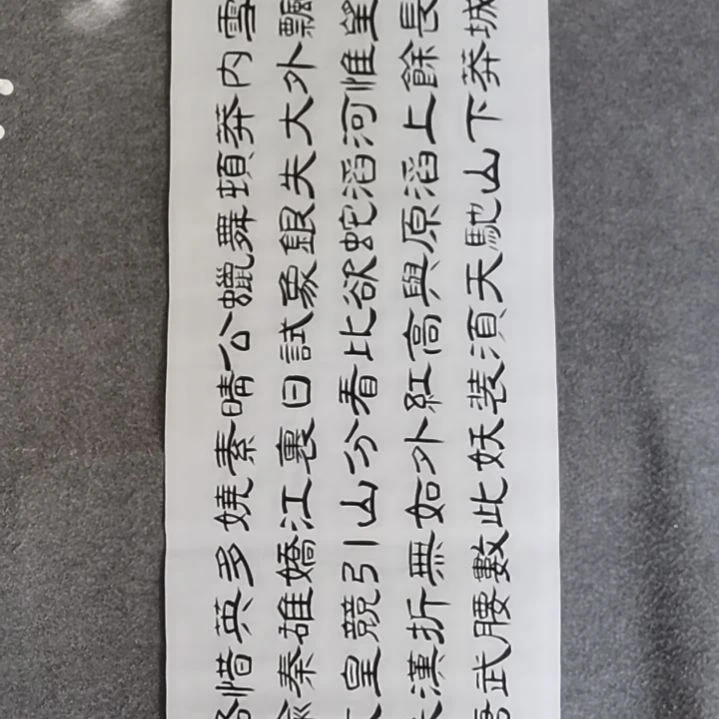 雪飄望長城
內外惟餘莽
莽大河上下
頓失滔滔山
舞銀蛇原馳
蠟象欲與天
公試比高須
晴日看紅装
素裹分外妖
嬈江山如此
多嬌引無數
英雄競折腰
惜秦皇漢武